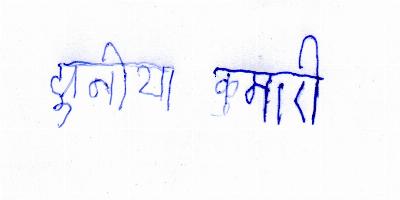 मुनीया कुमारी